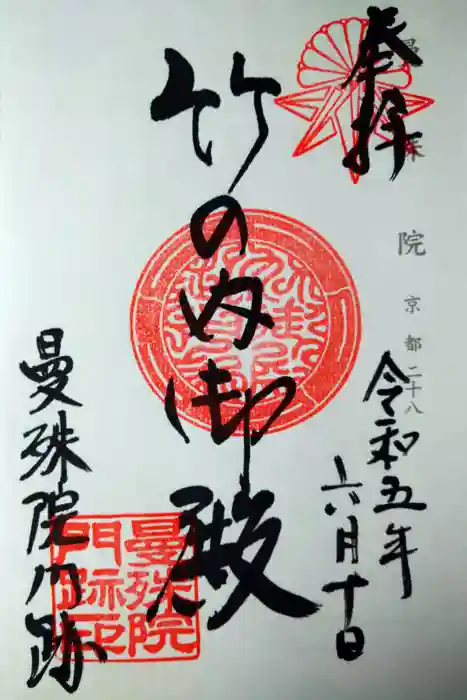 奉拝
曼殊院 京都二十八
令和五年
六月十日
竹の内御殿
曼殊院門跡
曼殊院
門跡印